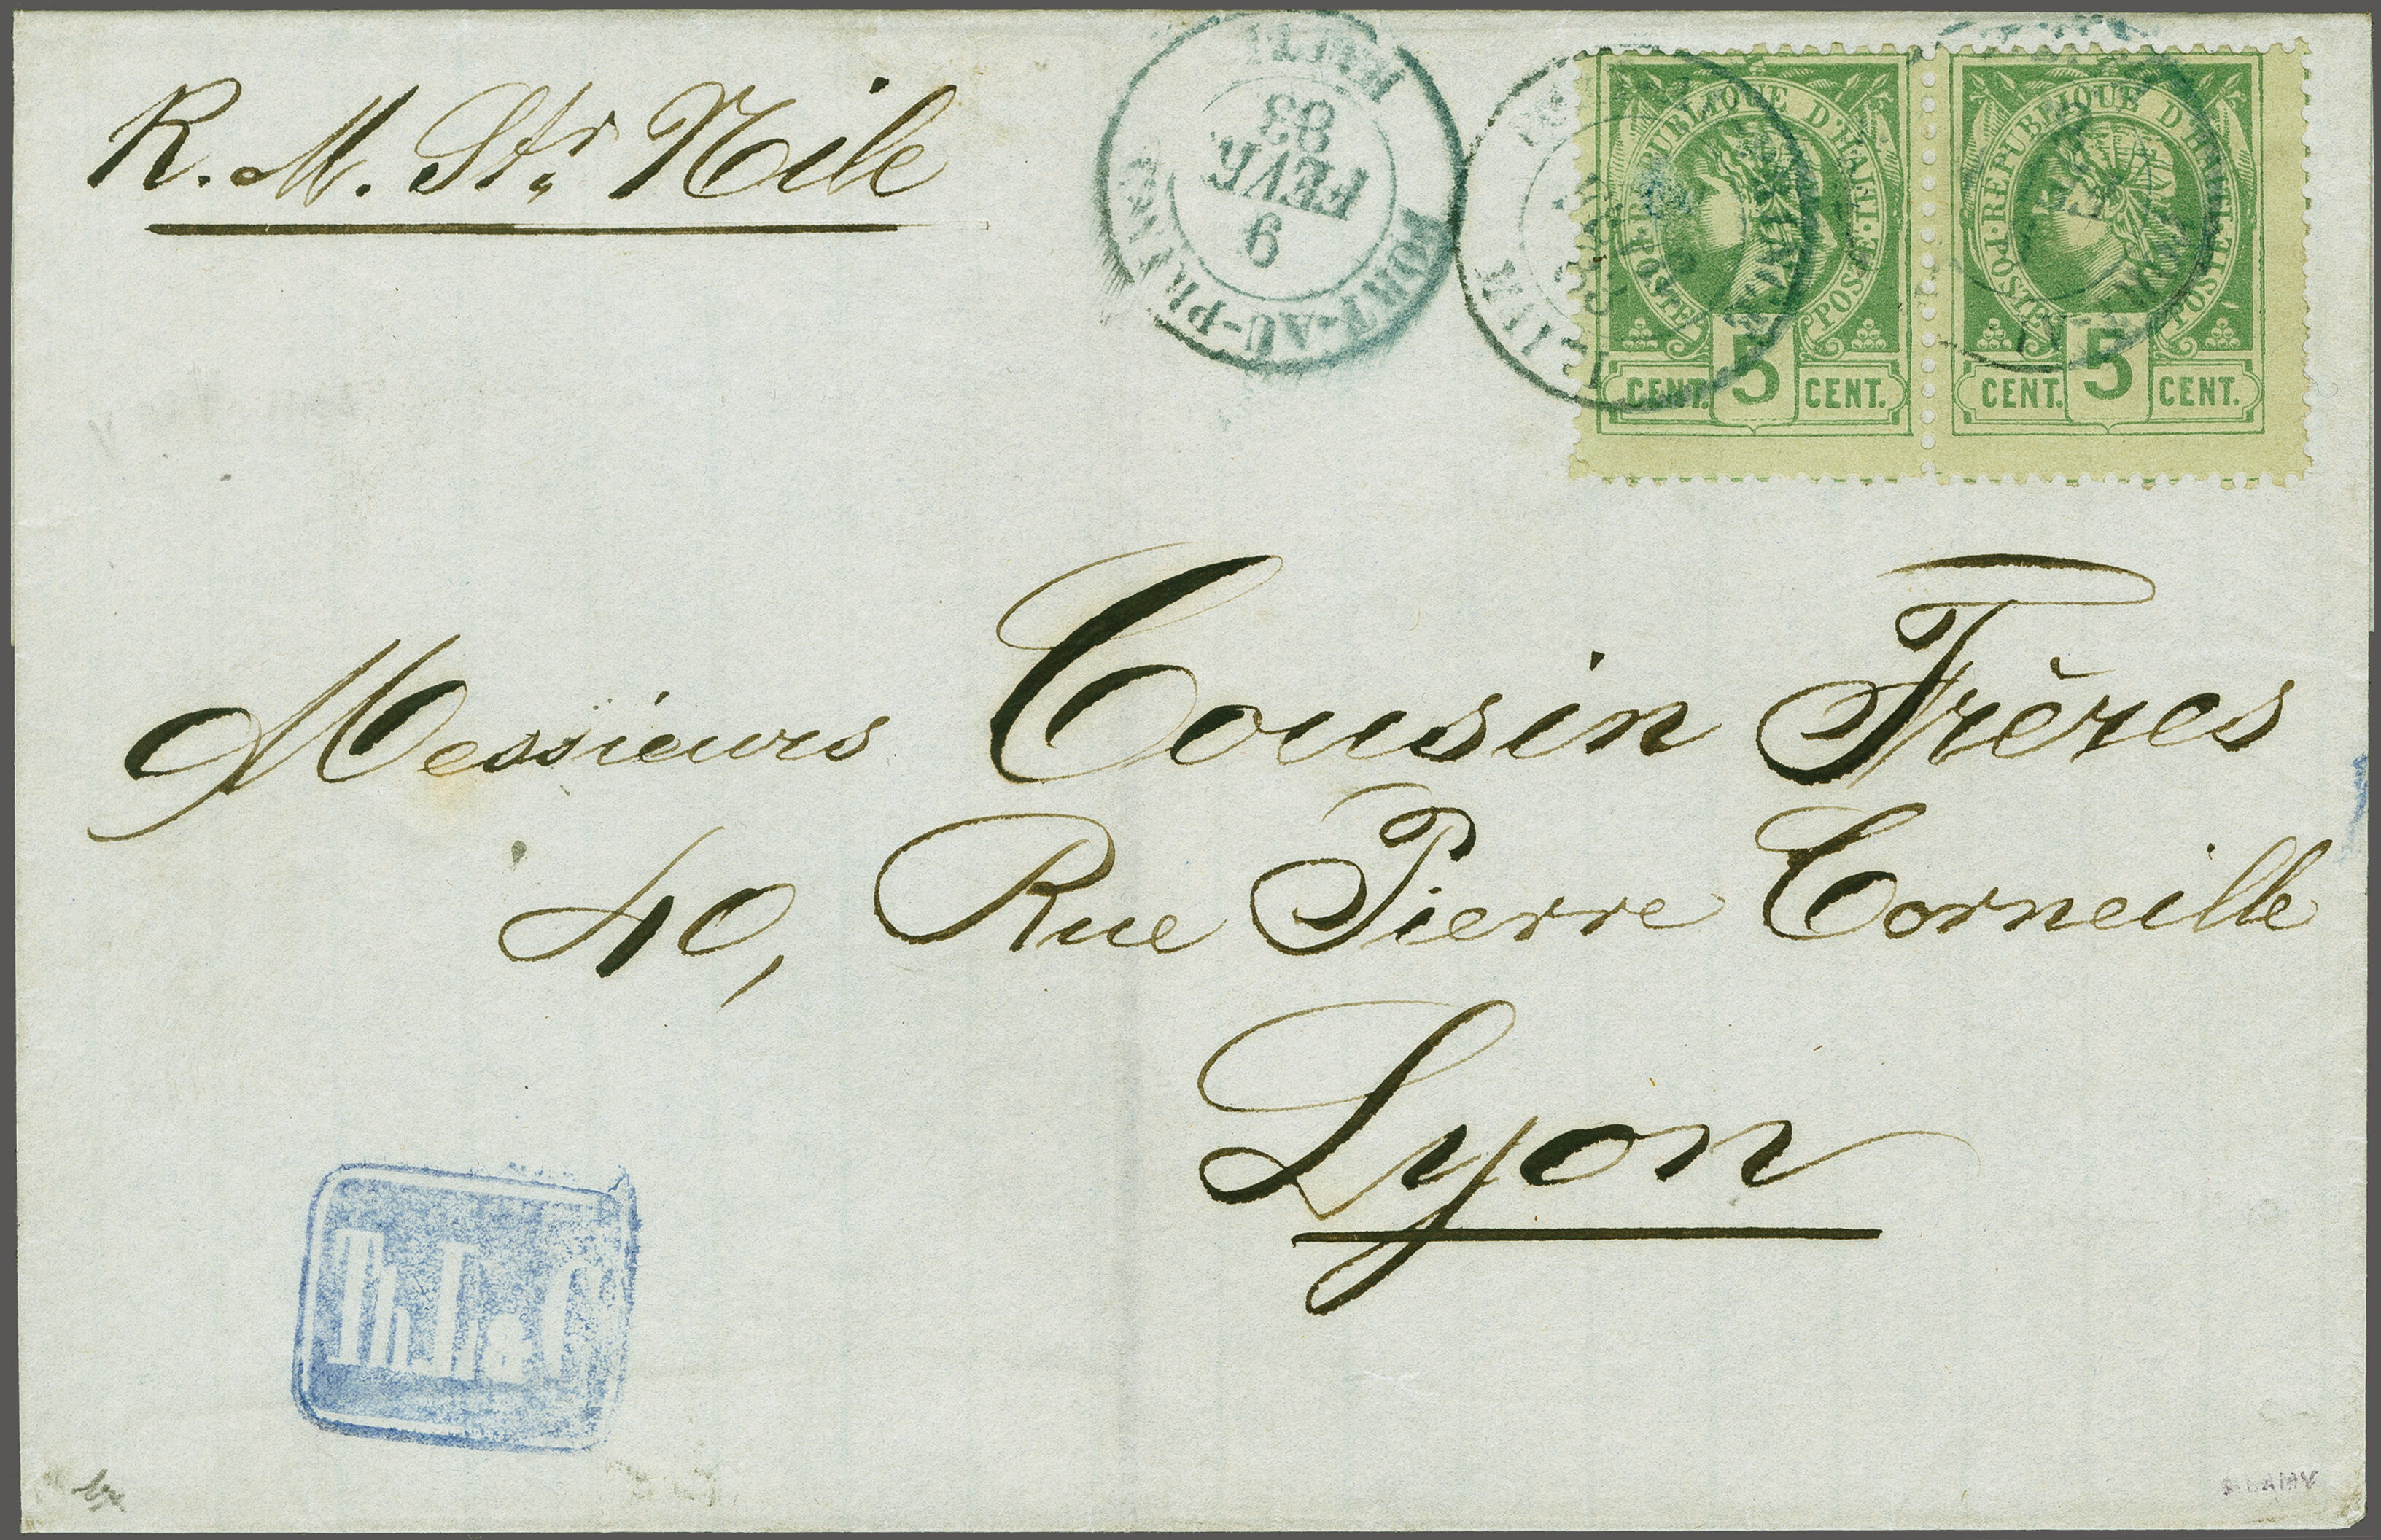 R. M. Str Nile
HAITI
9
FEVR.
83
PORT-AU-PRINCE
REPUBLIQUE D'HAITI
POSTES
POSTE
CENT. 5 CENT.
REPUBLIQUE D'HAITI
POSTES
POSTE
CENT. 5 CENT.
Messieurs Cousin Frères
40, Rue Pierre Corneille
Lyon